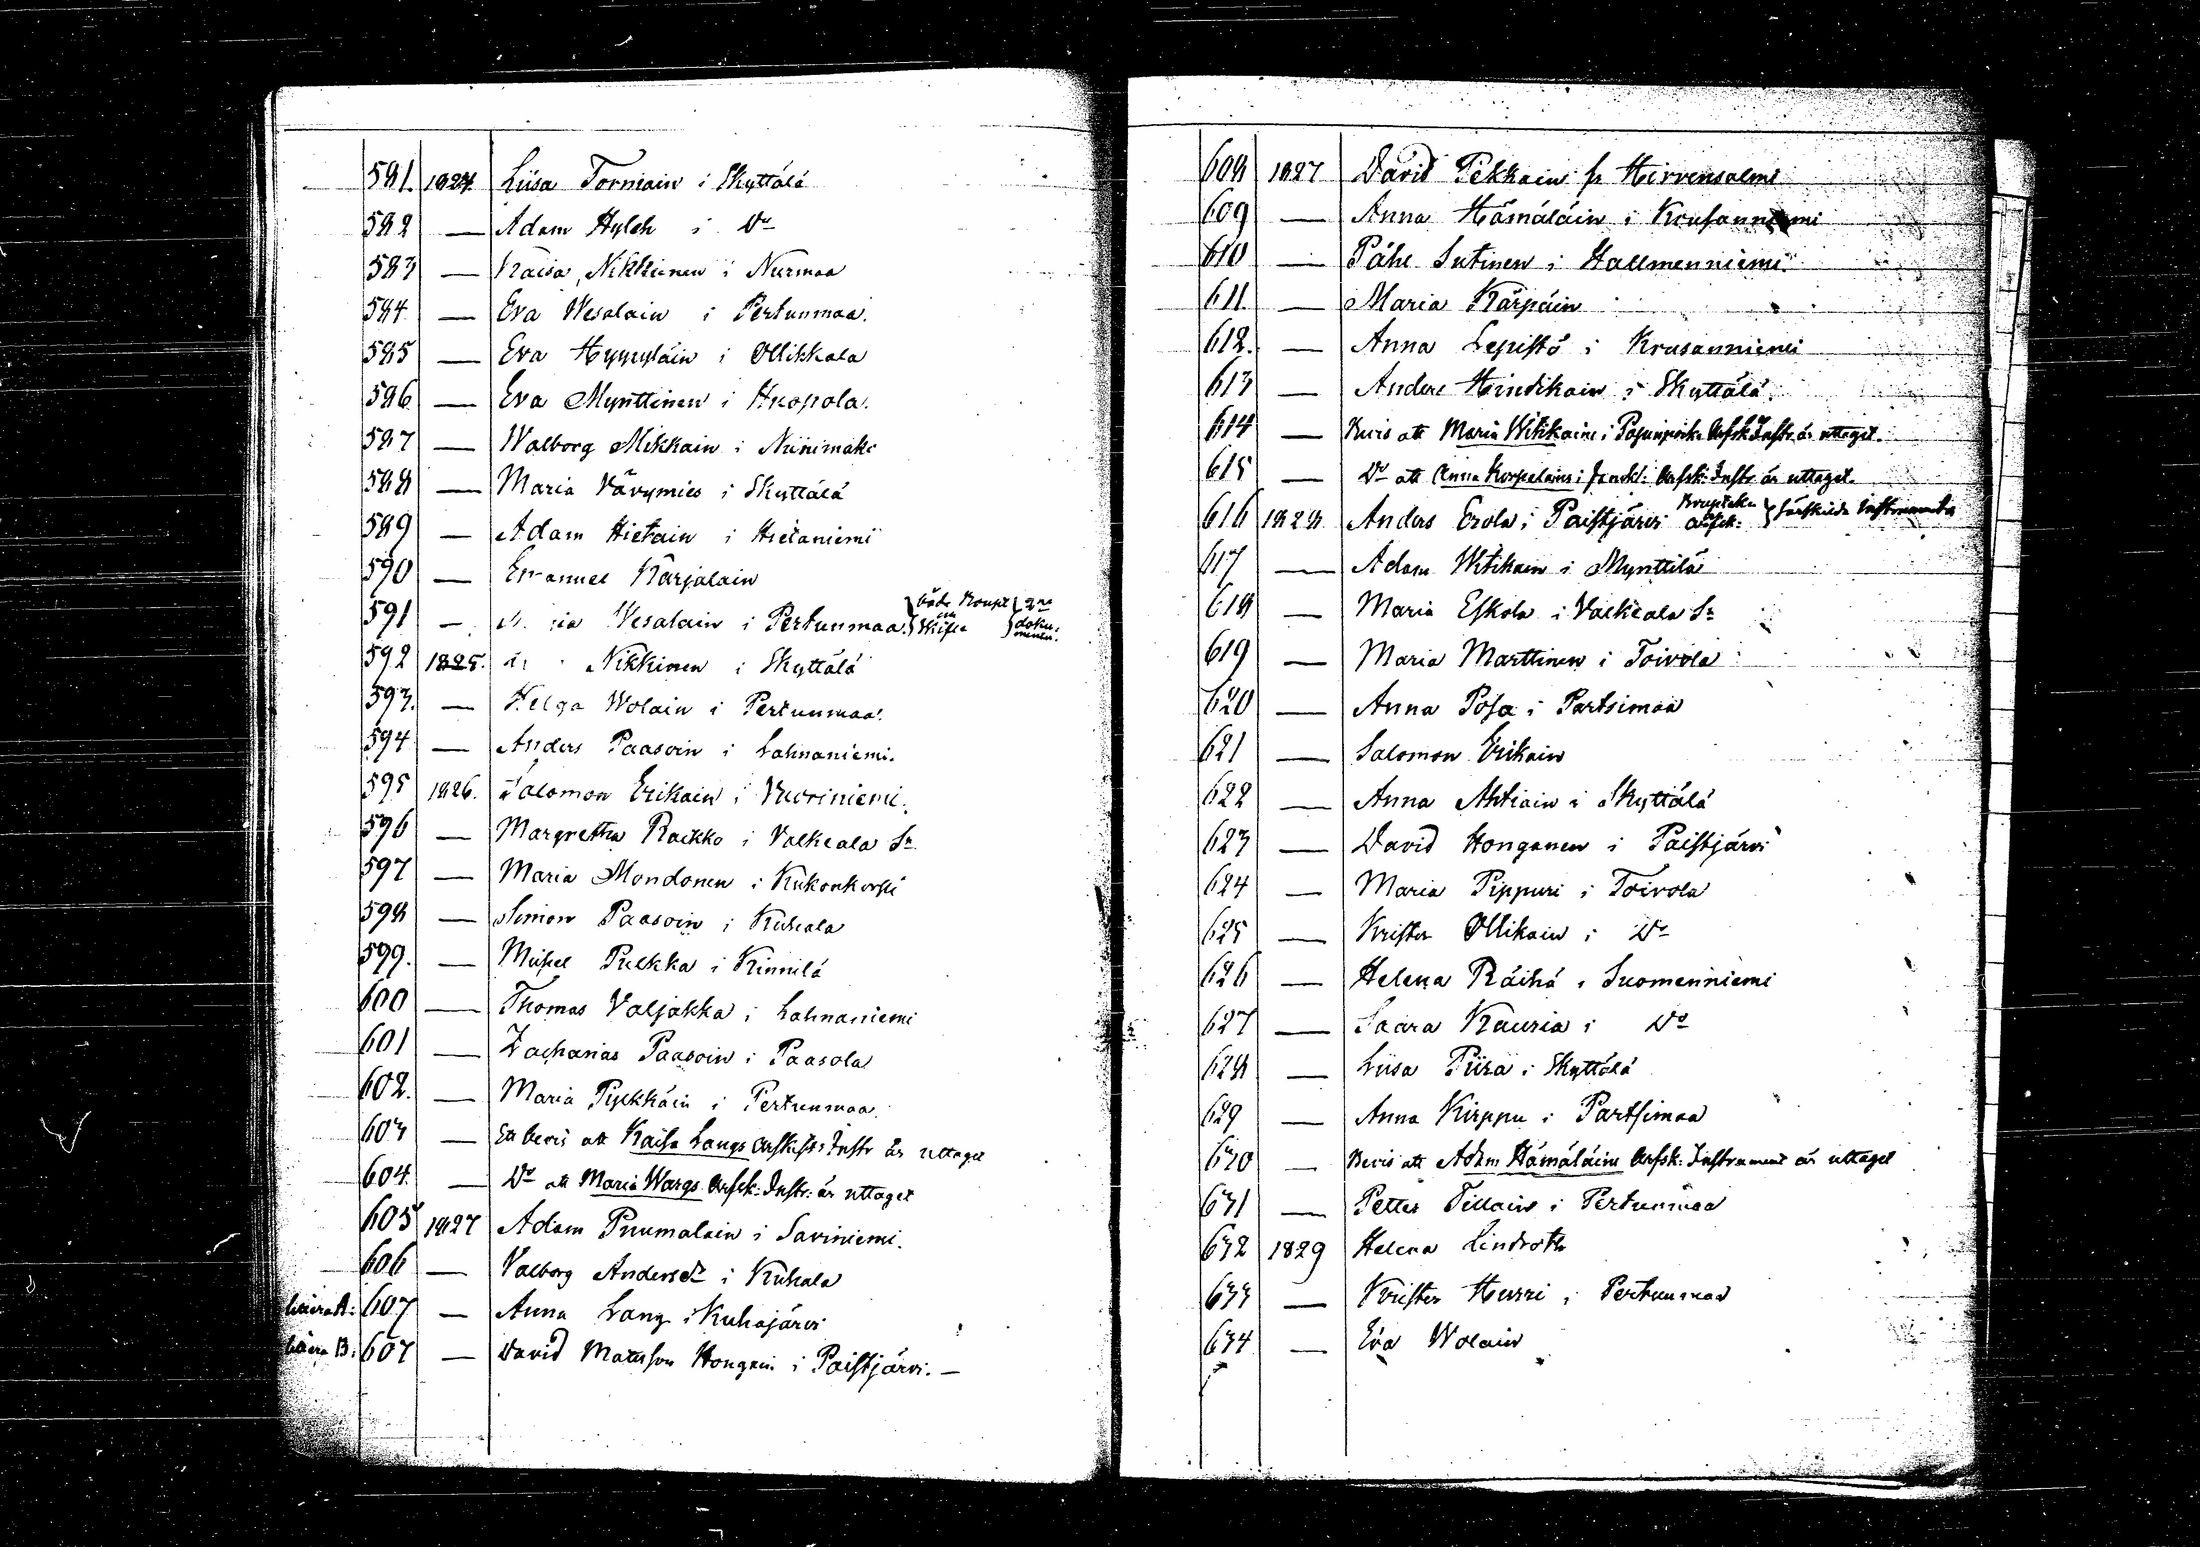 581. 1824. Liisa Torniain i Skyttälä
582 — Adam Hylch i Do
583 — Kaisa Nikkinen i Nurmaa
584 — Eva Wesalain i Pertunmaa.
585 — Eva Hyyryläin i Ollikkala
586 — Eva Mynttinen i Huopola.
587 — Walborg Mikkain i Niinimäki
588 — Maria Värymies i Skyttälä
589 — Adam Hietain i Hietaniemi
590 — Emanuel Karjalain
591 — Wesalain i Pertunmaa både Koupe och Skifte 2ne dokumenter.
592 1825. Nikkinen i Skyttälä
593. — Helga Wolain i Pertunmaa.
594 — Anders Paasoin i Lahnaniemi.
595 1826. Salomon Erikain i Vuoriniemi.
596 — Margretha Raikko i Valkeala Sn
597 — Maria Mondonen i Kukonkorpi
598 — Simon Paasoin i Kuhala
599. — Mickel Pulkka i Kinnilä
600 — Thomas Valjakka i Lahnaniemi
601 — Zacharias Paasoin i Paasola
602. — Maria Pyykkäin i Pertunmaa.
603 — Ett bevis att Kaisa Langs Arfskifts: Instr är uttaget
604. — Do att Maria Wargs Arfsk: Instr: är uttaget
605 1827 Adam Puumalain i Saviniemi.
606 — Valborg Andersdr i Kuhala
Littera A: 607 — Anna Lang i Kuhajärvi
Littera B: 607 — David Matsson Hongain i Paistjärvi. —
608 1827 David Pekkain fr Hirvensalmi
609 — Anna Hämäläin i Krusanniemi
610 — Påhl Sutinen i Hallmenniemi.
611 — Maria Kärpäin
612. — Anna Lepistö i Krusanniemi
613 — Anders Hindikain i Skyttälä.
614 — Bevis att Maria Witikains i Arfsk Instr är uttaget.
615 — Do att Anna Korpelains i Arfsk: Instr är uttaget.
616 1828 Anders Erola i Paistjärvi arfsk: särskilda instrumenter
617 — Adam Witikain i Mynttilä
618 — Maria Eskola i Valkeala Sn
619 — Maria Marttinen i Toivola
620 — Anna Posa i Partsimaa
621 — Salomon Erikain
622 — Anna Ahtiain i Skyttälä
623 — David Honganen i Paistjärvi
624 — Maria Pippuri i Toivola
625 — Krister Ollikain i Do
626 — Helena Räihä i Suomenniemi
627 — Saara Kauria i Do
628 — Liisa Piira i Skyttälä
629 — Anna Kirppu i Partsimaa
630 — Bevis att Adam Hämäläins Arfsk: Instrument är uttaget
631 — Petter Tillain i Pertunmaa
632 1829 Helena Lindroth
633 — Krister Hurri i Pertunmaa
634 — Eva Wolain